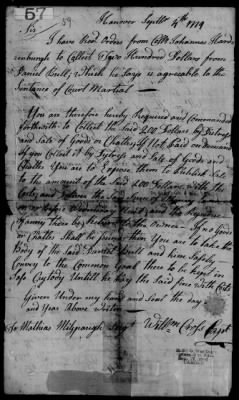 67
59
Hanover Septbr 4th 1779
Sir
I have Recd Orders from Coll Johannas Hard
enburgh to Collect Two Hundred Dollars from
Daniel Bull, Which he Says is agreeable to the
Sentance of Court Martial —
You are therefore hereby Required and Commanded
forthwith to Collect the Said 200 Dollars by Distress
and Sale of Goods or Chattels if Not Paid on demand
if you Collect it by Distress and Sale of Goods and
Chattles You are to Expose them to Publick Sale
to the amount of the Said 200 Dollars with the
if any there be, to the Owner. If no Goods
or Chatles Shall be found then You are to take the
Body of the Said Daniel Bull and him Safely
Convey to the Common Goal there to be kept in
Safe Custody Untill he Pay the Said fine with Costs
Given Under my hand and Seal the day
and Year Above Written —
To Mathias Milspaugh Sergt Willm Cross Capt